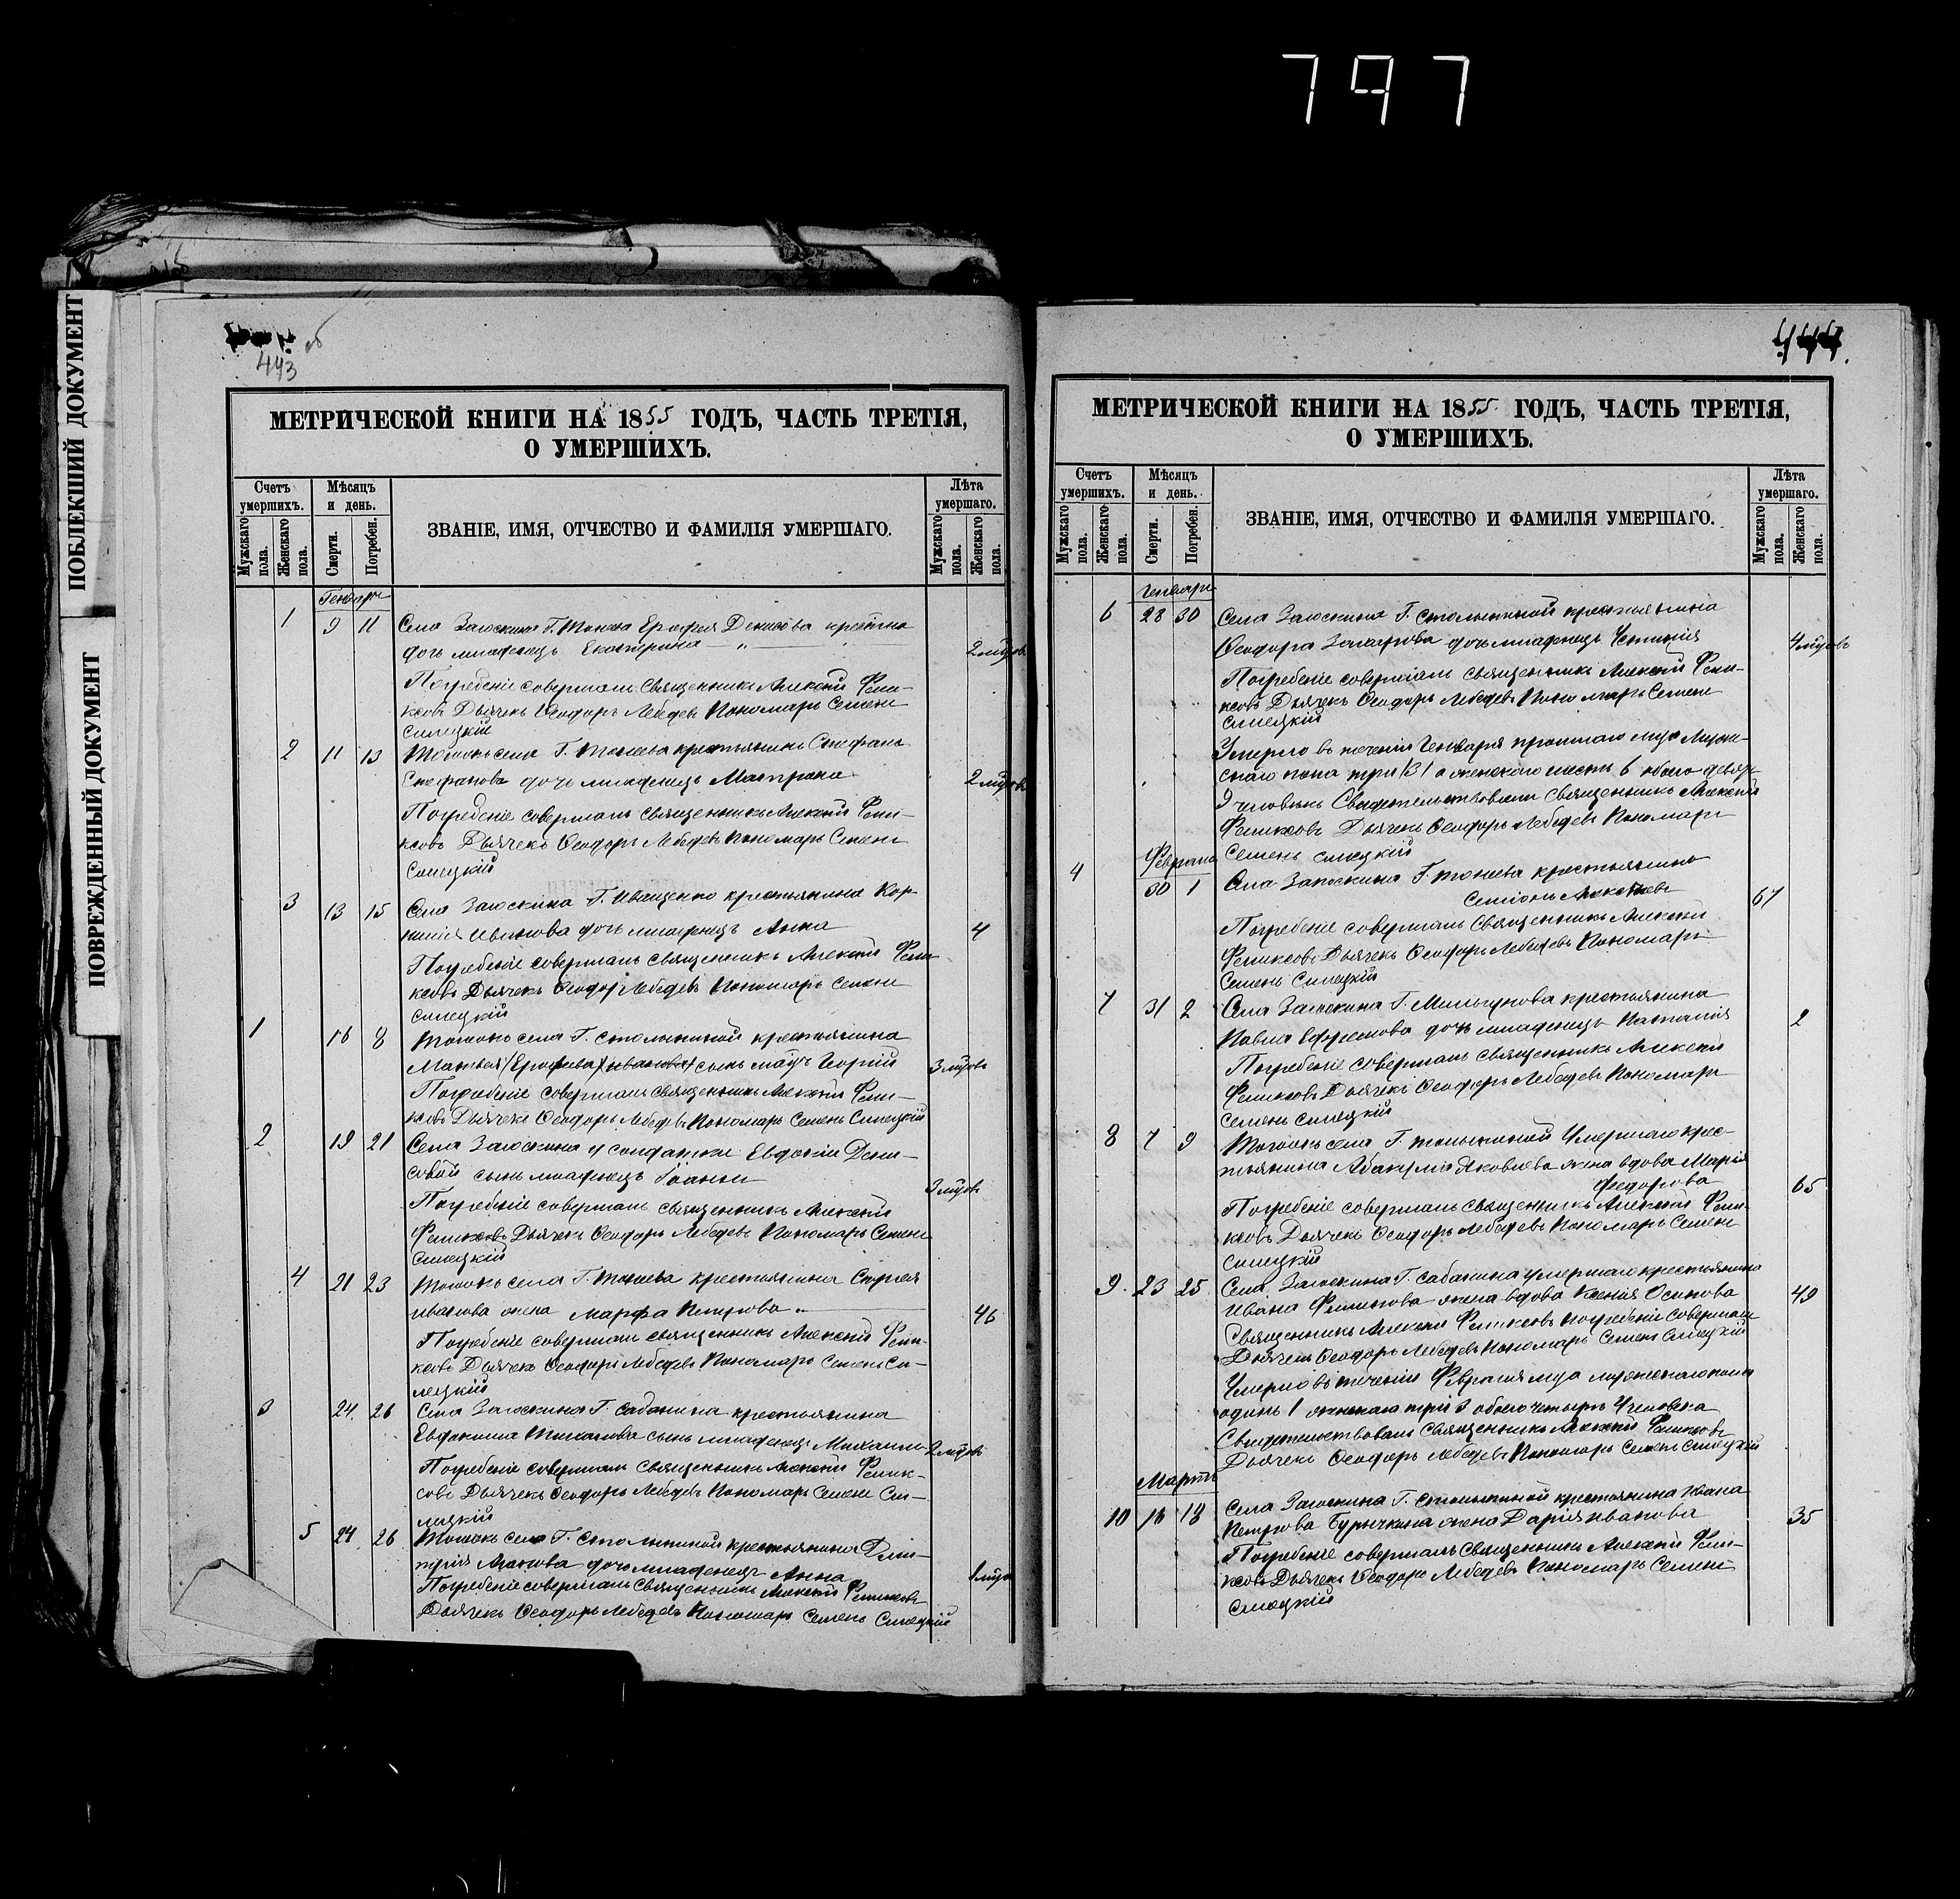 797
ПОБЛЕКШИЙ ДОКУМЕНТ
ПОВРЕЖДЕННЫЙ ДОКУМЕНТ
443 об
МЕТРИЧЕСКОЙ КНИГИ НА 1855 ГОДЪ, ЧАСТЬ ТРЕТІЯ,
О УМЕРШИХЪ.
Счетъ умершихъ. Мѣсяцъ и день. ЗВАНІЕ, ИМЯ, ОТЧЕСТВО И ФАМИЛІЯ УМЕРШАГО. Лѣта умершаго.
Мужскаго пола. Женскаго пола. Смерти. Погребен. Мужскаго пола. Женскаго пола.
Генварь
1 9 11 Села Загоскина Г. Ерофея Денисова
дочь младенецъ Екатерина 2
Погребеніе совершалъ Священникъ Алексѣй Фели-
ксовъ Дьячекъ Ѳеодоръ Лебедевъ Пономарь Семенъ
Силецкій
2 11 13 Тогожъ села Г. крестьянина Стефана
Стефанова дочь младенецъ Матрона 2
Погребеніе совершалъ Священникъ Алексѣй Фели-
ксовъ Дьячекъ Ѳеодоръ Лебедевъ Пономарь Семенъ
Силецкій
3 13 15 Села Загоскина Г. Иващенко крестьянина Кор-
нилія Иванова дочь младенецъ Анна 4
Погребеніе совершалъ Священникъ Алексѣй Фели-
ксовъ Дьячекъ Ѳеодоръ Лебедевъ Пономарь Семенъ
Силецкій
1 16 8 Тогожъ села Г. Столыпиной крестьянина
Матвея /Ерофеева/ Иванова сынъ Георгій 3
Погребеніе совершалъ Священникъ Алексѣй Фели-
ксовъ Дьячекъ Ѳеодоръ Лебедевъ Пономарь Семенъ Силецкій
2 19 21 Села Загоскина у солдатки Евдокіи Дени-
совой сынъ младенецъ Іоаннъ 3
Погребеніе совершалъ Священникъ Алексѣй
Феликсовъ Дьячекъ Ѳеодоръ Лебедевъ Пономарь Семенъ
Силецкій
4 21 23 Тогожъ села Г. крестьянина Сергея
Иванова жена Марфа Петрова 46
Погребеніе совершалъ Священникъ Алексѣй Фели-
ксовъ Дьячекъ Ѳеодоръ Лебедевъ Пономарь Семенъ Си-
лецкій
3 24 26 Села Загоскина Г. Сабанина крестьянина
Евдокима сынъ младенецъ Михаилъ 2
Погребеніе совершалъ Священникъ Алексѣй Фелик-
совъ Дьячекъ Ѳеодоръ Лебедевъ Пономарь Семенъ Си-
лецкій
5 24 26 Тогожъ села Г. Столыпиной крестьянина Дми-
трія дочь младенецъ Анна 1
Погребеніе совершалъ Священникъ Алексѣй Феликсовъ
Дьячекъ Ѳеодоръ Лебедевъ Пономарь Семенъ Силецкій
444.
МЕТРИЧЕСКОЙ КНИГИ НА 1855 ГОДЪ, ЧАСТЬ ТРЕТІЯ,
О УМЕРШИХЪ.
Счетъ умершихъ. Мѣсяцъ и день. ЗВАНІЕ, ИМЯ, ОТЧЕСТВО И ФАМИЛІЯ УМЕРШАГО. Лѣта умершаго.
Мужскаго пола. Женскаго пола. Смерти. Погребен. Мужскаго пола. Женскаго пола.
Генварь
6 28 30 Села Загоскина Г. Столыпиной крестьянина
Ѳеодора Захарова дочь младенецъ 4
Погребеніе совершалъ Священникъ Алексѣй Фели-
ксовъ Дьячекъ Ѳеодоръ Лебедевъ Пономарь Семенъ
Силецкій
Умерло въ теченіи Генваря прошлаго мца Муже-
скаго пола три /3/ а женскаго шесть 6 обоего девять
9 человѣкъ Свидетельствовали Священникъ Алексѣй
Феликсовъ Дьячекъ Ѳеодоръ Лебедевъ Пономарь
Семенъ Силецкій
Февраль
4 30 1 Села Загоскина Г. крестьянинъ
67
Погребеніе совершалъ Священникъ Алексѣй
Феликсовъ Дьячекъ Ѳеодоръ Лебедевъ Пономарь
Семенъ Силецкій
7 31 2 Села Загоскина Г. Мильгунова крестьянина
Павла Ефремова дочь младенецъ Наталія 2
Погребеніе совершалъ Священникъ Алексѣй
Феликсовъ Дьячекъ Ѳеодоръ Лебедевъ Пономарь
Семенъ Силецкій
8 7 9 Тогожъ села Г. умершаго крес-
тьянина Абакума Яковлева жена вдова Марія
Федорова 65
Погребеніе совершалъ Священникъ Алексѣй Фели-
ксовъ Дьячекъ Ѳеодоръ Лебедевъ Пономарь Семенъ
Силецкій
9. 23 25. Села Загоскина Г. Сабанина умершаго крестьянина
Ивана Филипова жена вдова Ксенія Осипова 49
Священникъ Алексѣй Феликсовъ погребеніе совершалъ
Дьячекъ Ѳеодоръ Лебедевъ Пономарь Семенъ Силецкій
Умерло въ теченіи Февраля мца мужескаго пола
одинъ 1 женскаго три 3 обоего четыре 4 человека
Свидетельствовали Священникъ Алексѣй Феликсовъ
Дьячекъ Ѳеодоръ Лебедевъ Пономарь Семенъ Силецкій
Мартъ
10 16 18 Села Загоскина Г. Столыпиной крестьянина Ивана
Петрова Бурычкина жена Дарія Иванова 35
Погребеніе совершалъ Священникъ Алексѣй Фели-
ксовъ Дьячекъ Ѳеодоръ Лебедевъ Пономарь Семенъ
Силецкій